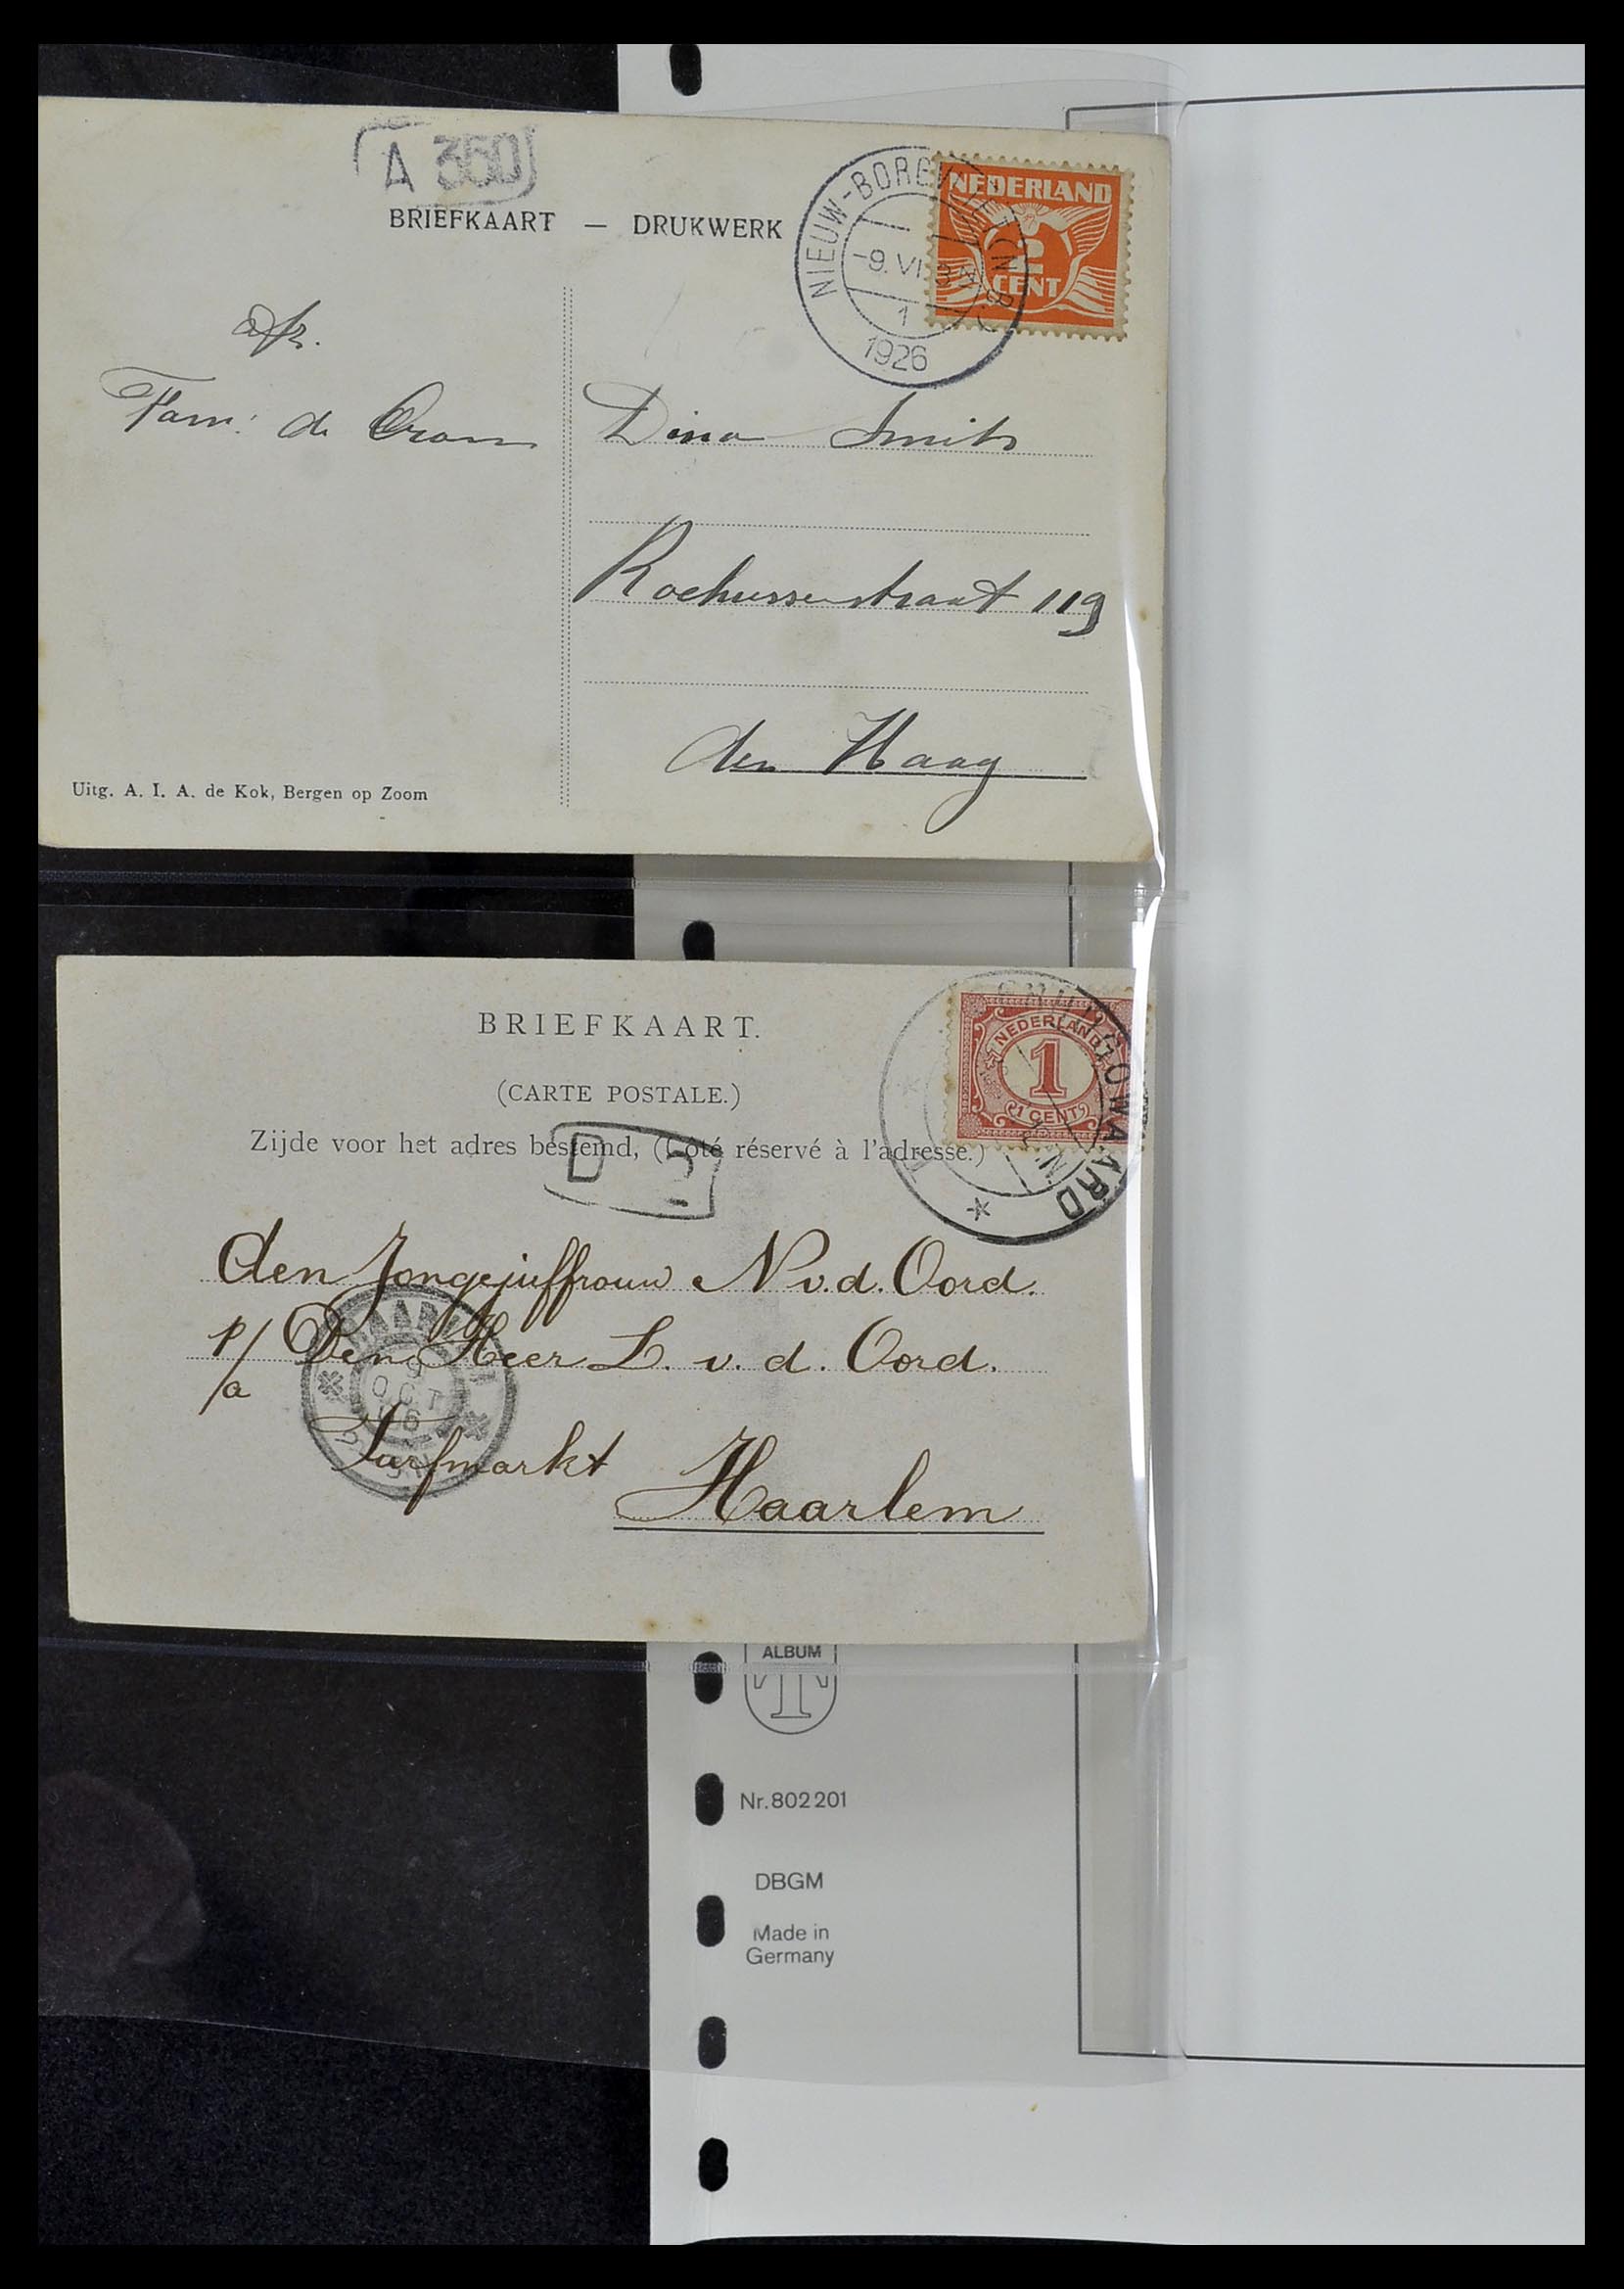 A 350
BRIEFKAART — DRUKWERK
NEDERLAND
2
CENT
NIEUW-BORGVLIET (N.B.)
-9.VI
1
1926
afz.
Fam: de
Dina Smits
Rochussenstraat 119
den Haag
Uitg. A. I. A. de Kok, Bergen op Zoom
BRIEFKAART.
(CARTE POSTALE.)
Zijde voor het adres bestemd, (Côté réservé à l'adresse.)
NEDERLAND
1
1 CENT
WAARD
D
den Jongejuffrouw N v.d. Oord.
p/a Den Heer L. v. d. Oord.
Turfmarkt
Haarlem
HAARLEM
OCT
06
ALBUM
Nr. 802 201
DBGM
Made in
Germany